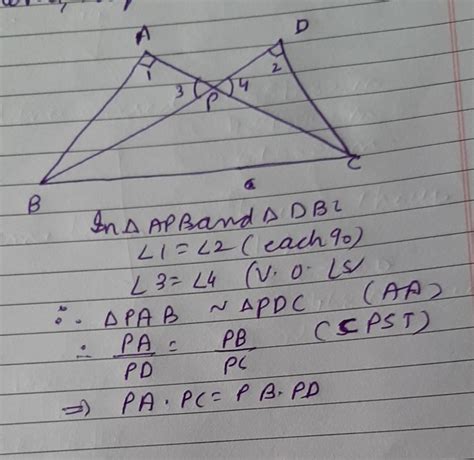 A
D
1
2
3
4
P
B
C
In △ APB and △ DBC
∠1 = ∠2 (each 90)
∠3 = ∠4 (V. O. ∠s
∴ △PAB ~ △PDC (AA)
∴ PA/PD = PB/PC (CPST)
⇒ PA · PC = PB · PD